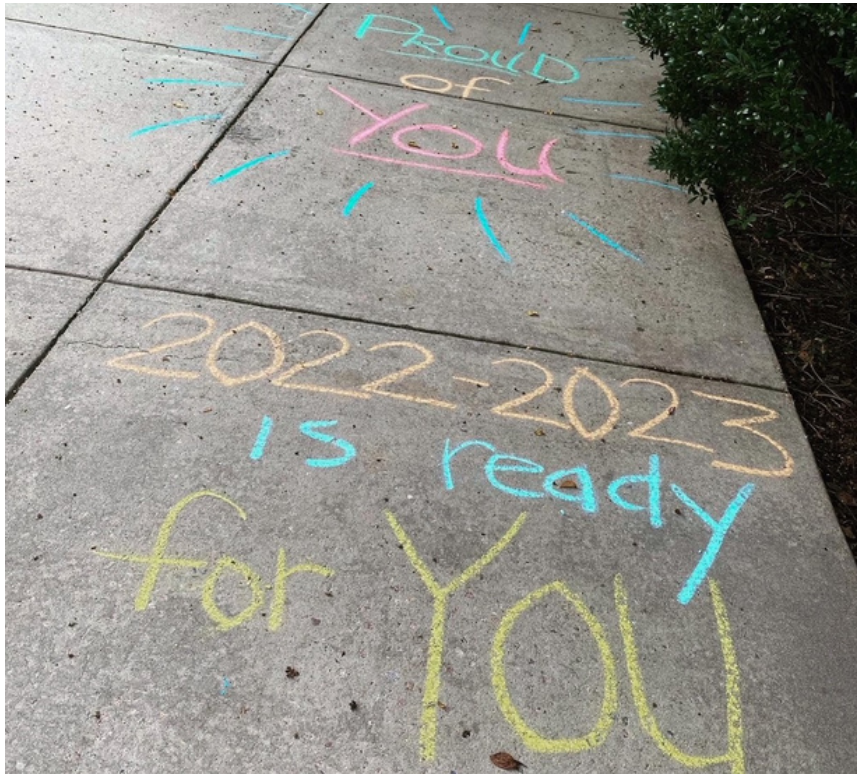 PROUD
of
YOU
2022-2023
is ready
for YOU